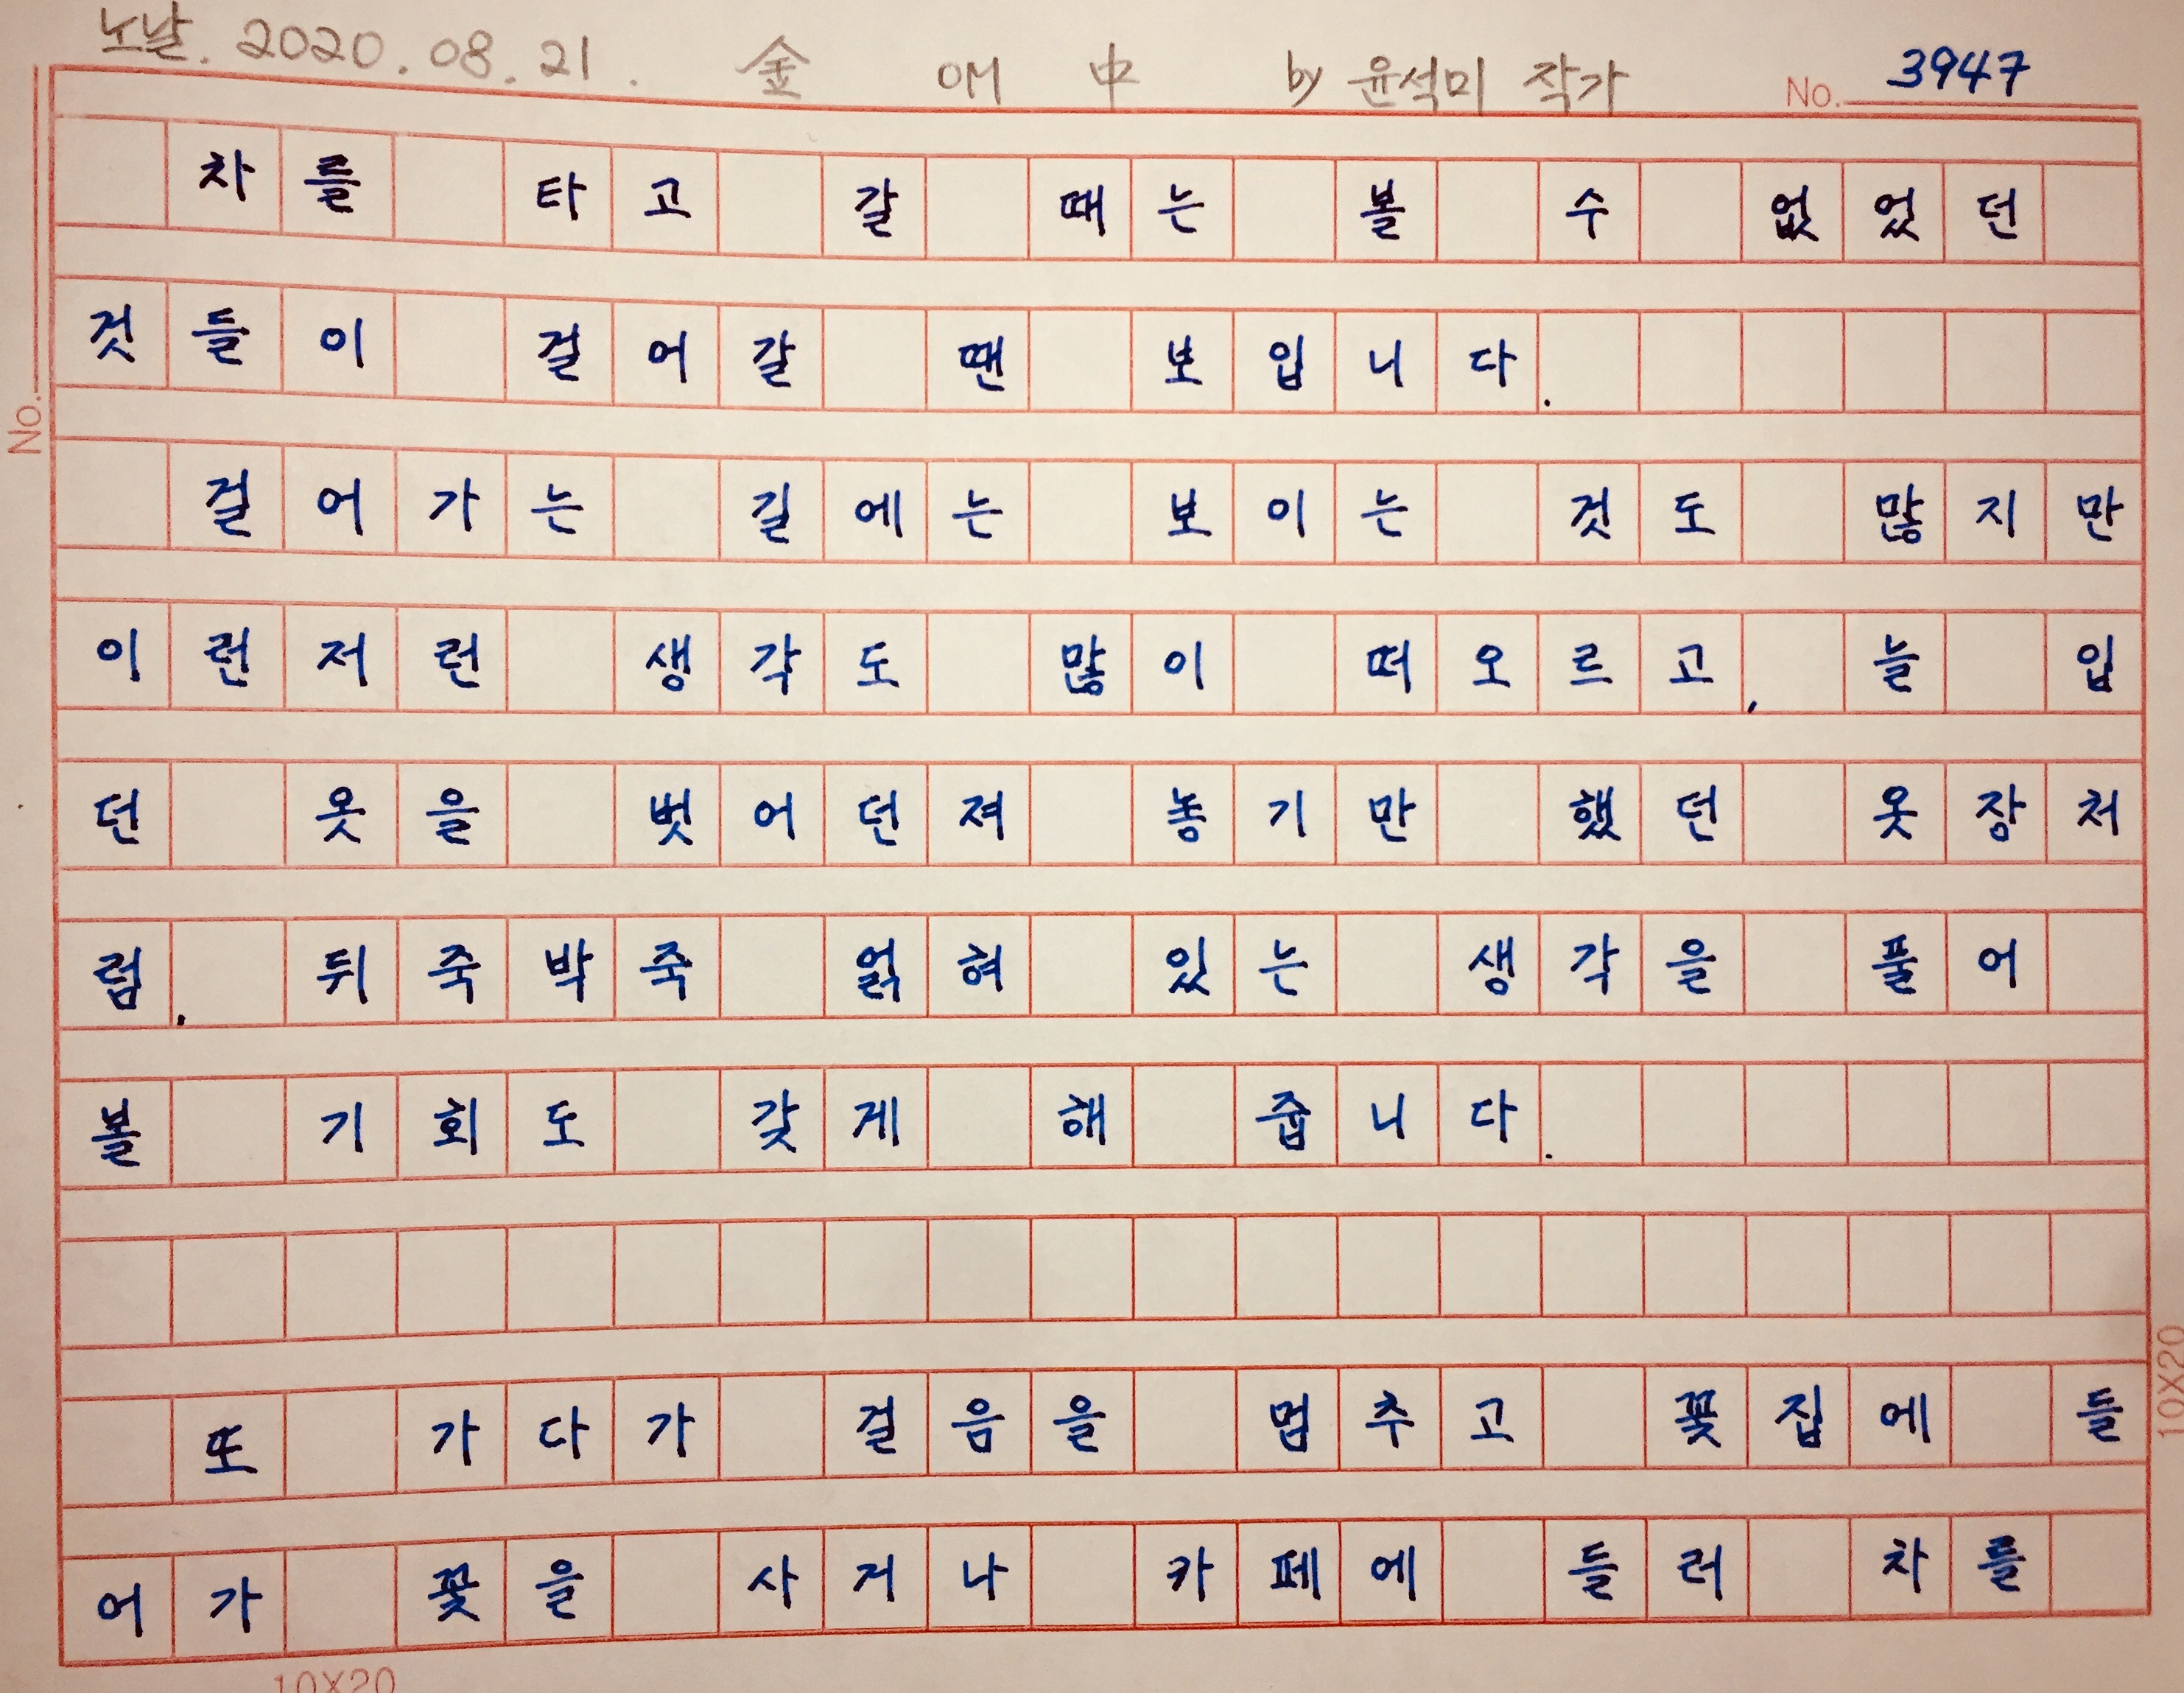 노날. 2020. 08. 21. 金 OM 中 by 윤석미 작가 No. 3947
차를 타고 갈 때는 볼 수 없었던
것들이 걸어갈 땐 보입니다.
걸어가는 길에는 보이는 것도 많지만
이런저런 생각도 많이 떠오르고, 늘 입
던 옷을 벗어던져 놓기만 했던 옷장처
럼, 뒤죽박죽 얽혀 있는 생각을 풀어
볼 기회도 갖게 해 줍니다.
또 가다가 걸음을 멈추고 꽃집에 들
어가 꽃을 사거나 카페에 들러 차를
No.
10X20
10X20